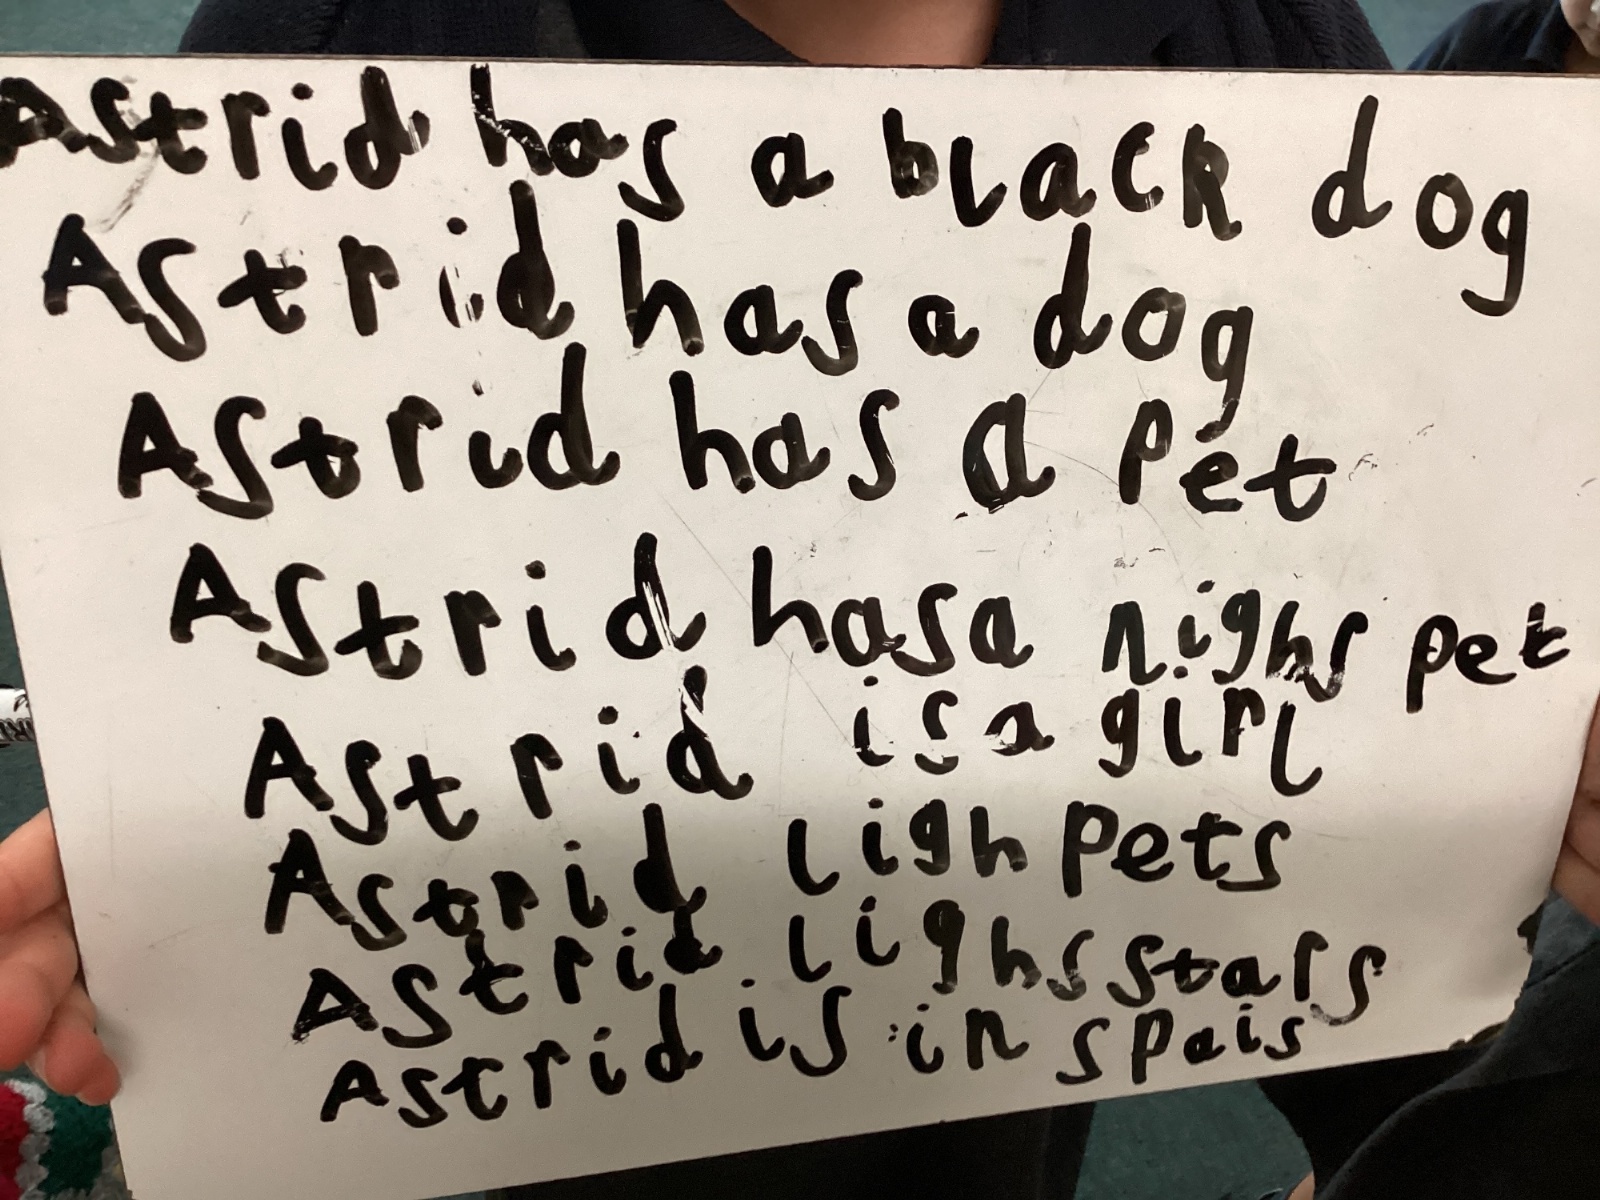 Astrid has a black dog
Astrid has a dog
Astrid has a pet
Astrid has a nighs pet
Astrid is a girl
Astrid ligh pets
Astrid lighs stars
Astrid is in spais